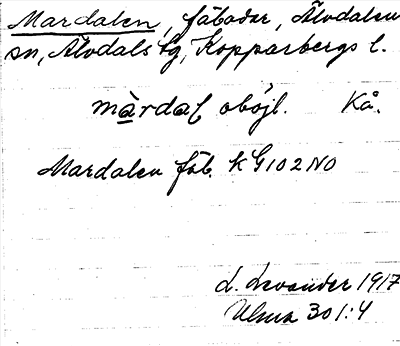 Mardalen, fäbodar, Älvdalens
sn, Älvdals tg, Kopparbergs l.
màrdaſ oböjl. Kå.
Mardalen fäb. KG102NO
L. Levander 1917
Ulma 301:4